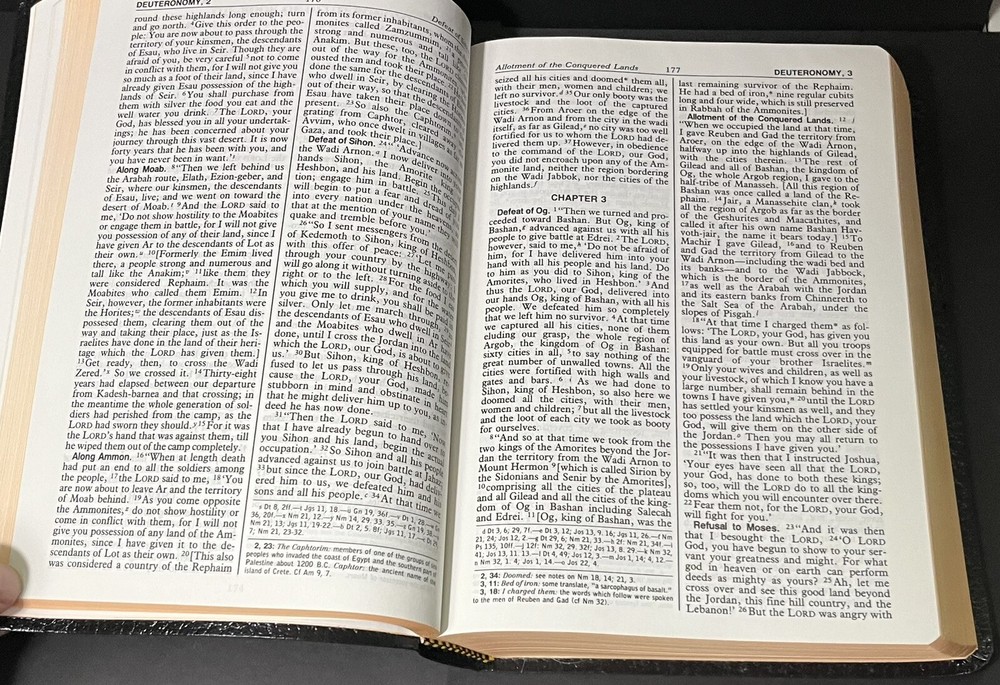 DEUTERONOMY, 2
round these highlands long enough; turn
and go north. ⁴Give this order to the peo-
ple: You are now about to pass through the
territory of your kinsmen, the descendants
of Esau, who live in Seir. Though they are
afraid of you, be very careful ⁵not to come
in conflict with them, for I will not give you
so much as a foot of their land, since I have
already given Esau possession of the high-
lands of Seir. ⁶You shall purchase from
them with silver the food you eat and the
well water you drink. ⁷The LORD, your
God, has blessed you in all your undertak-
ings; he has been concerned about your
journey through this vast desert. It is now
forty years that he has been with you, and
you have never been in want.'
Along Moab. ⁸"Then we left behind us
the Arabah route, Elath, Ezion-geber, and
Seir, where our kinsmen, the descendants
of Esau, live; and we went on toward the
desert of Moab. ⁹And the LORD said to
me, 'Do not show hostility to the Moabites
or engage them in battle, for I will not give
you possession of any of their land, since I
have given Ar to the descendants of Lot as
their own. ¹⁰[Formerly the Emim lived
there, a people strong and numerous and
tall like the Anakim; ¹¹like them they
were considered Rephaim. It was the
Moabites who called them Emim. ¹²In
Seir, however, the former inhabitants were
the Horites; the descendants of Esau dis-
possessed them, clearing them out of the
way and taking their place, just as the Is-
raelites have done in the land of their heri-
tage which the LORD has given them.]
¹³Get ready, then, to cross the Wadi
Zered.' So we crossed it. ¹⁴Thirty-eight
years had elapsed between our departure
from Kadesh-barnea and that crossing; in
the meantime the whole generation of sol-
diers had perished from the camp, as the
LORD had sworn they should. ¹⁵For it was
the LORD's hand that was against them, till
he wiped them out of the camp completely.
Along Ammon. ¹⁶"When at length death
had put an end to all the soldiers among
the people, ¹⁷the LORD said to me, ¹⁸'You
are now about to leave Ar and the territory
of Moab behind. ¹⁹As you come opposite
the Ammonites, do not show hostility or
come in conflict with them, for I will not
give you possession of any land of the Am-
monites, since I have given it to the de-
scendants of Lot as their own. ²⁰[This also
was considered a country of the Rephaim
from its former inhabitants, whom the
monites called Zamzummim,
strong and numerous and tall
Anakim. But these, too, the
out of the way for the Ammonites,
ousted them and took their place.
done the same for the descendants
who dwell in Seir, by clearing the
out of their way, so that the
Esau have taken their place down
present. ²³So also the Caphtorim,
grating from Caphtor, cleared
Avvim, who once dwelt in villages
Gaza, and took their place.]
Defeat of Sihon. ²⁴"'Advance now
the Wadi Arnon. I now deliver into
hands Sihon, the Amorite king
Heshbon, and his land. Begin the
tion; engage him in battle. ²⁵This
will begin to put a fear and dread of
into every nation under the heavens,
that at the mention of your name they
quake and tremble before you.'
²⁶"So I sent messengers from the desert
of Kedemoth to Sihon, king of Heshbon,
with this offer of peace: ²⁷'Let me
through your country by the highway;
will go along it without turning aside
right or to the left. ²⁸For the food
which you will supply, and for the
you give me to drink, you shall be
silver. Only let me march through,
the descendants of Esau who dwell in
and the Moabites who dwell in Ar have
done, until I cross the Jordan into the land
which the LORD, our God, is about to give
us.' ³⁰But Sihon, king of Heshbon,
fused to let us pass through his land,
cause the LORD, your God, made him
stubborn in mind and obstinate in
that he might deliver him up to you, as
deed he has now done.
³¹"Then the LORD said to me, 'Now
that I have already begun to hand over
you Sihon and his land, begin the
occupation.' ³²So Sihon and all his people
advanced against us to join battle at Jahaz;
³³but since the LORD, our God, had deliv-
ered him to us, we defeated him and his
sons and all his people. ³⁴At that time we
2, 23: The Caphtorim: members of one of the groups of
peoples who invaded the coast of Egypt and the southern part of
Palestine about 1200 B.C. Caphtor: the ancient name of the
island of Crete. Cf Am 9, 7.
Allotment of the Conquered Lands
177
DEUTERONOMY, 3
seized all his cities and doomed* them all,
with their men, women and children; we
left no survivor. ³⁵Our only booty was the
livestock and the loot of the captured
cities. ³⁶From Aroer on the edge of the
Wadi Arnon and from the city in the wadi
itself, as far as Gilead, no city was too well
fortified for us to whom the LORD had de-
livered them up. ³⁷However, in obedience
to the command of the LORD, our God,
you did not encroach upon any of the Am-
monite land, neither the region bordering
on the Wadi Jabbok, nor the cities of the
highlands.
CHAPTER 3
Defeat of Og. ¹"Then we turned and pro-
ceeded toward Bashan. But Og, king of
Bashan, advanced against us with all his
people to give battle at Edrei. ²The LORD,
however, said to me, 'Do not be afraid of
him, for I have delivered him into your
hand with all his people and his land. Do
to him as you did to Sihon, king of the
Amorites, who lived in Heshbon.' ³And
thus the LORD, our God, delivered into
our hands Og, king of Bashan, with all his
people. We defeated him so completely
that we left him no survivor. ⁴At that time
we captured all his cities, none of them
eluding our grasp, the whole region of
Argob, the kingdom of Og in Bashan:
sixty cities in all, ⁵to say nothing of the
great number of unwalled towns. All the
cities were fortified with high walls and
gates and bars. ⁶As we had done to
Sihon, king of Heshbon, so also here we
doomed all the cities, with their men,
women and children; ⁷but all the livestock
and the loot of each city we took as booty
for ourselves.
⁸"And so at that time we took from the
two kings of the Amorites beyond the Jor-
dan the territory from the Wadi Arnon to
Mount Hermon ⁹[which is called Sirion by
the Sidonians and Senir by the Amorites],
¹⁰comprising all the cities of the plateau
and all Gilead and all the cities of the king-
dom of Og in Bashan including Salecah
and Edrei. ¹¹[Og, king of Bashan, was the
2, 34: Doomed: see notes on Nm 18, 14; 21, 3.
3, 11: Bed of iron: some translate, "a sarcophagus of basalt."
3, 18: I charged them: the words which follow were spoken
to the men of Reuben and Gad (cf Nm 32).
last remaining survivor of the Rephaim.
He had a bed of iron,* nine regular cubits
long and four wide, which is still preserved
in Rabbah of the Ammonites.]
Allotment of the Conquered Lands. ¹²
"When we occupied the land at that time,
I gave Reuben and Gad the territory from
Aroer, on the edge of the Wadi Arnon,
halfway up into the highlands of Gilead,
with the cities therein. ¹³The rest of
Gilead and all of Bashan, the kingdom of
Og, the whole Argob region, I gave to the
half-tribe of Manasseh. [All this region of
Bashan was once called a land of the Re-
phaim. ¹⁴Jair, a Manassehite clan, took
all the region of Argob as far as the border
of the Geshurites and Maacathites, and
called it after his own name Bashan Hav-
voth-jair, the name it bears today.] ¹⁵To
Machir I gave Gilead, ¹⁶and to Reuben
and Gad the territory from Gilead to the
Wadi Arnon—including the wadi bed and
its banks—and to the Wadi Jabbok,
which is the border of the Ammonites,
¹⁷as well as the Arabah with the Jordan
and its eastern banks from Chinnereth to
the Salt Sea of the Arabah, under the
slopes of Pisgah.
¹⁸"At that time I charged them* as fol-
lows: 'The LORD, your God, has given you
this land as your own. But all you troops
equipped for battle must cross over in the
vanguard of your brother Israelites.
¹⁹Only your wives and children, as well as
your livestock, of which I know you have a
large number, shall remain behind in the
towns I have given you, ²⁰until the LORD
has settled your kinsmen as well, and they
too possess the land which the LORD, your
God, will give them on the other side of
the Jordan. Then you may all return to
the possessions I have given you.'
²¹"It was then that I instructed Joshua,
'Your eyes have seen all that the LORD,
your God, has done to both these kings;
so, too, will the LORD do to all the king-
doms which you will encounter over there.
²²Fear them not, for the LORD, your God,
will fight for you.'
Refusal to Moses. ²³"And it was then
that I besought the LORD, ²⁴'O LORD
God, you have begun to show to your ser-
vant your greatness and might. For what
god in heaven or on earth can perform
deeds as mighty as yours? ²⁵Ah, let me
cross over and see this good land beyond
the Jordan, this fine hill country, and the
Lebanon!' ²⁶But the LORD was angry with